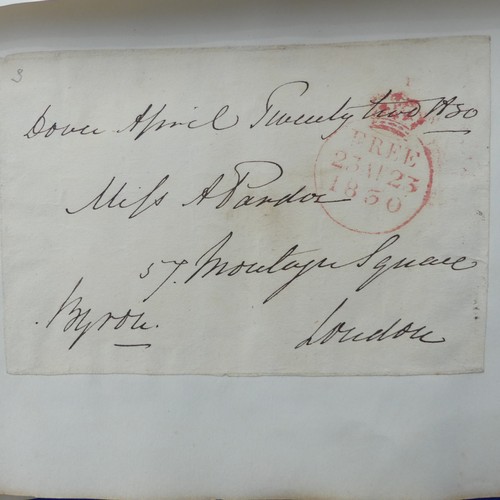 3
Dover April Twenty two 1830
FREE
23 AP 23
1830
Miss A Pardoe
57. Montagu Square
Byron.
London